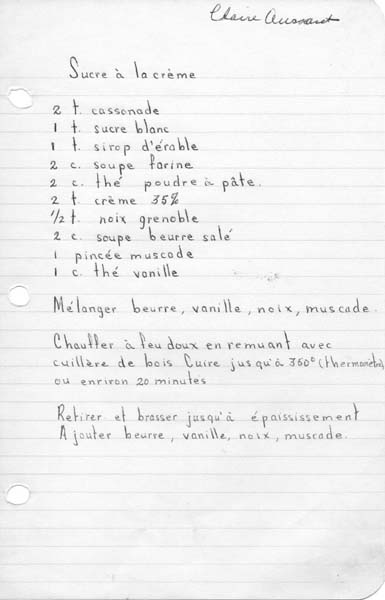 Claire
Sucre à la crème
2 t. cassonade
1 t. sucre blanc
1 t. sirop d'érable
2 c. soupe farine
2 c. thé poudre à pâte.
2 t. crème 35%
1/2 t. noix grenoble
2 c. soupe beurre salé
1 pincée muscade
1 c. thé vanille
Mélanger beurre, vanille, noix, muscade.
Chauffer à feu doux en remuant avec
cuillère de bois Cuire jusqu'à 350° (thermomètre)
ou environ 20 minutes
Retirer et brasser jusqu'à épaississement
Ajouter beurre, vanille, noix, muscade.